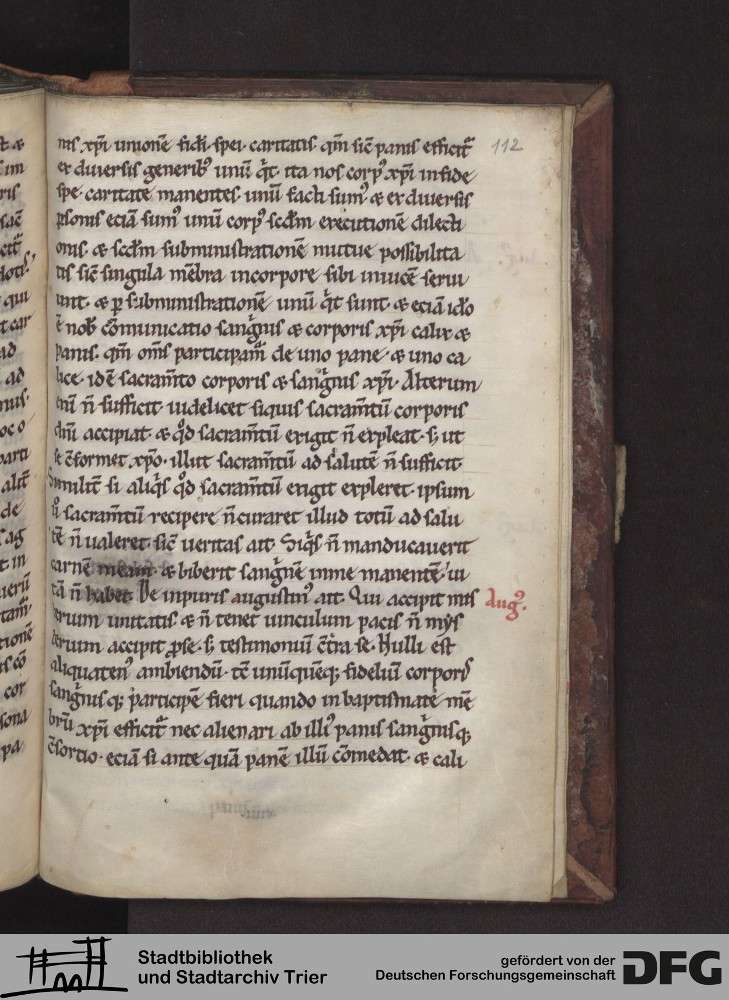 nis xp̄i unionē fidi spei caritatis. qm̄ sic̄ panis efficit᷑
112
ex diuersis generib᷒ unū q̇t. ita nos corp᷒ xp̄i in fide
spe. caritate manentes. unū facti sum᷒ & ex diuersis
ꝑsonis eciā sum᷒ unū corp᷒ scd̄m executionē dilecti
onis. & scd̄m subministrationē mutue possibilita
tis sic̄ singula mēbra incorpore sibi inuicē serui
unt. & ꝑ subministrationē unū q̇t sunt. & eciā id̄o
ē nob̄ cōmunicatio sanḡnis & corporis xp̄i calix &
panis. qm̄ om̄s participam᷒ de uno pane. & uno ca
lice. idē sacram̄to corporis & sanḡnis xp̄i. Alterum
enī n̄ sufficit. uidelicet siquis sacram̄tū corporis
dn̄i accipiat. & qd̄ sacram̄tū exigit n̄ expleat. s; ut
se c̄formet xp̄o. illut sacram̄tū ad salutē n̄ sufficit.
Similit̄ si aliq̇s qd̄ sacram̄tū exigit expleret. ipsum
u̇ sacram̄tū recipere n̄ curaret illud totū ad salu
tē n̄ ualeret. sic̄ ueritas ait. Siq̇s n̄ manducauerit
carnē meam. & biberit sanḡnē inme manentē. ui
tā n̄ habet. De inpuris augustin᷒ ait. Qui accipit mis
Aug᷒.
terium unitatis & n̄ tenet uinculum pacis n̄ mys
terium accipit ꝓ se. s; testimoniū c̄tra se. Nulli est
aliquaten᷒ ambiendū. tc̄ unūquēq; fideliū corporis
sanḡnisq; participē fieri quando in baptismate mē
brū xp̄i efficit᷑ nec alienari ab illi᷒ panis sanḡnisq;
c̄sortio. eciā si ante quā panē illū cōmedat. & cali
Stadtbibliothek
und Stadtarchiv Trier
gefördert von der
Deutschen Forschungsgemeinschaft
DFG